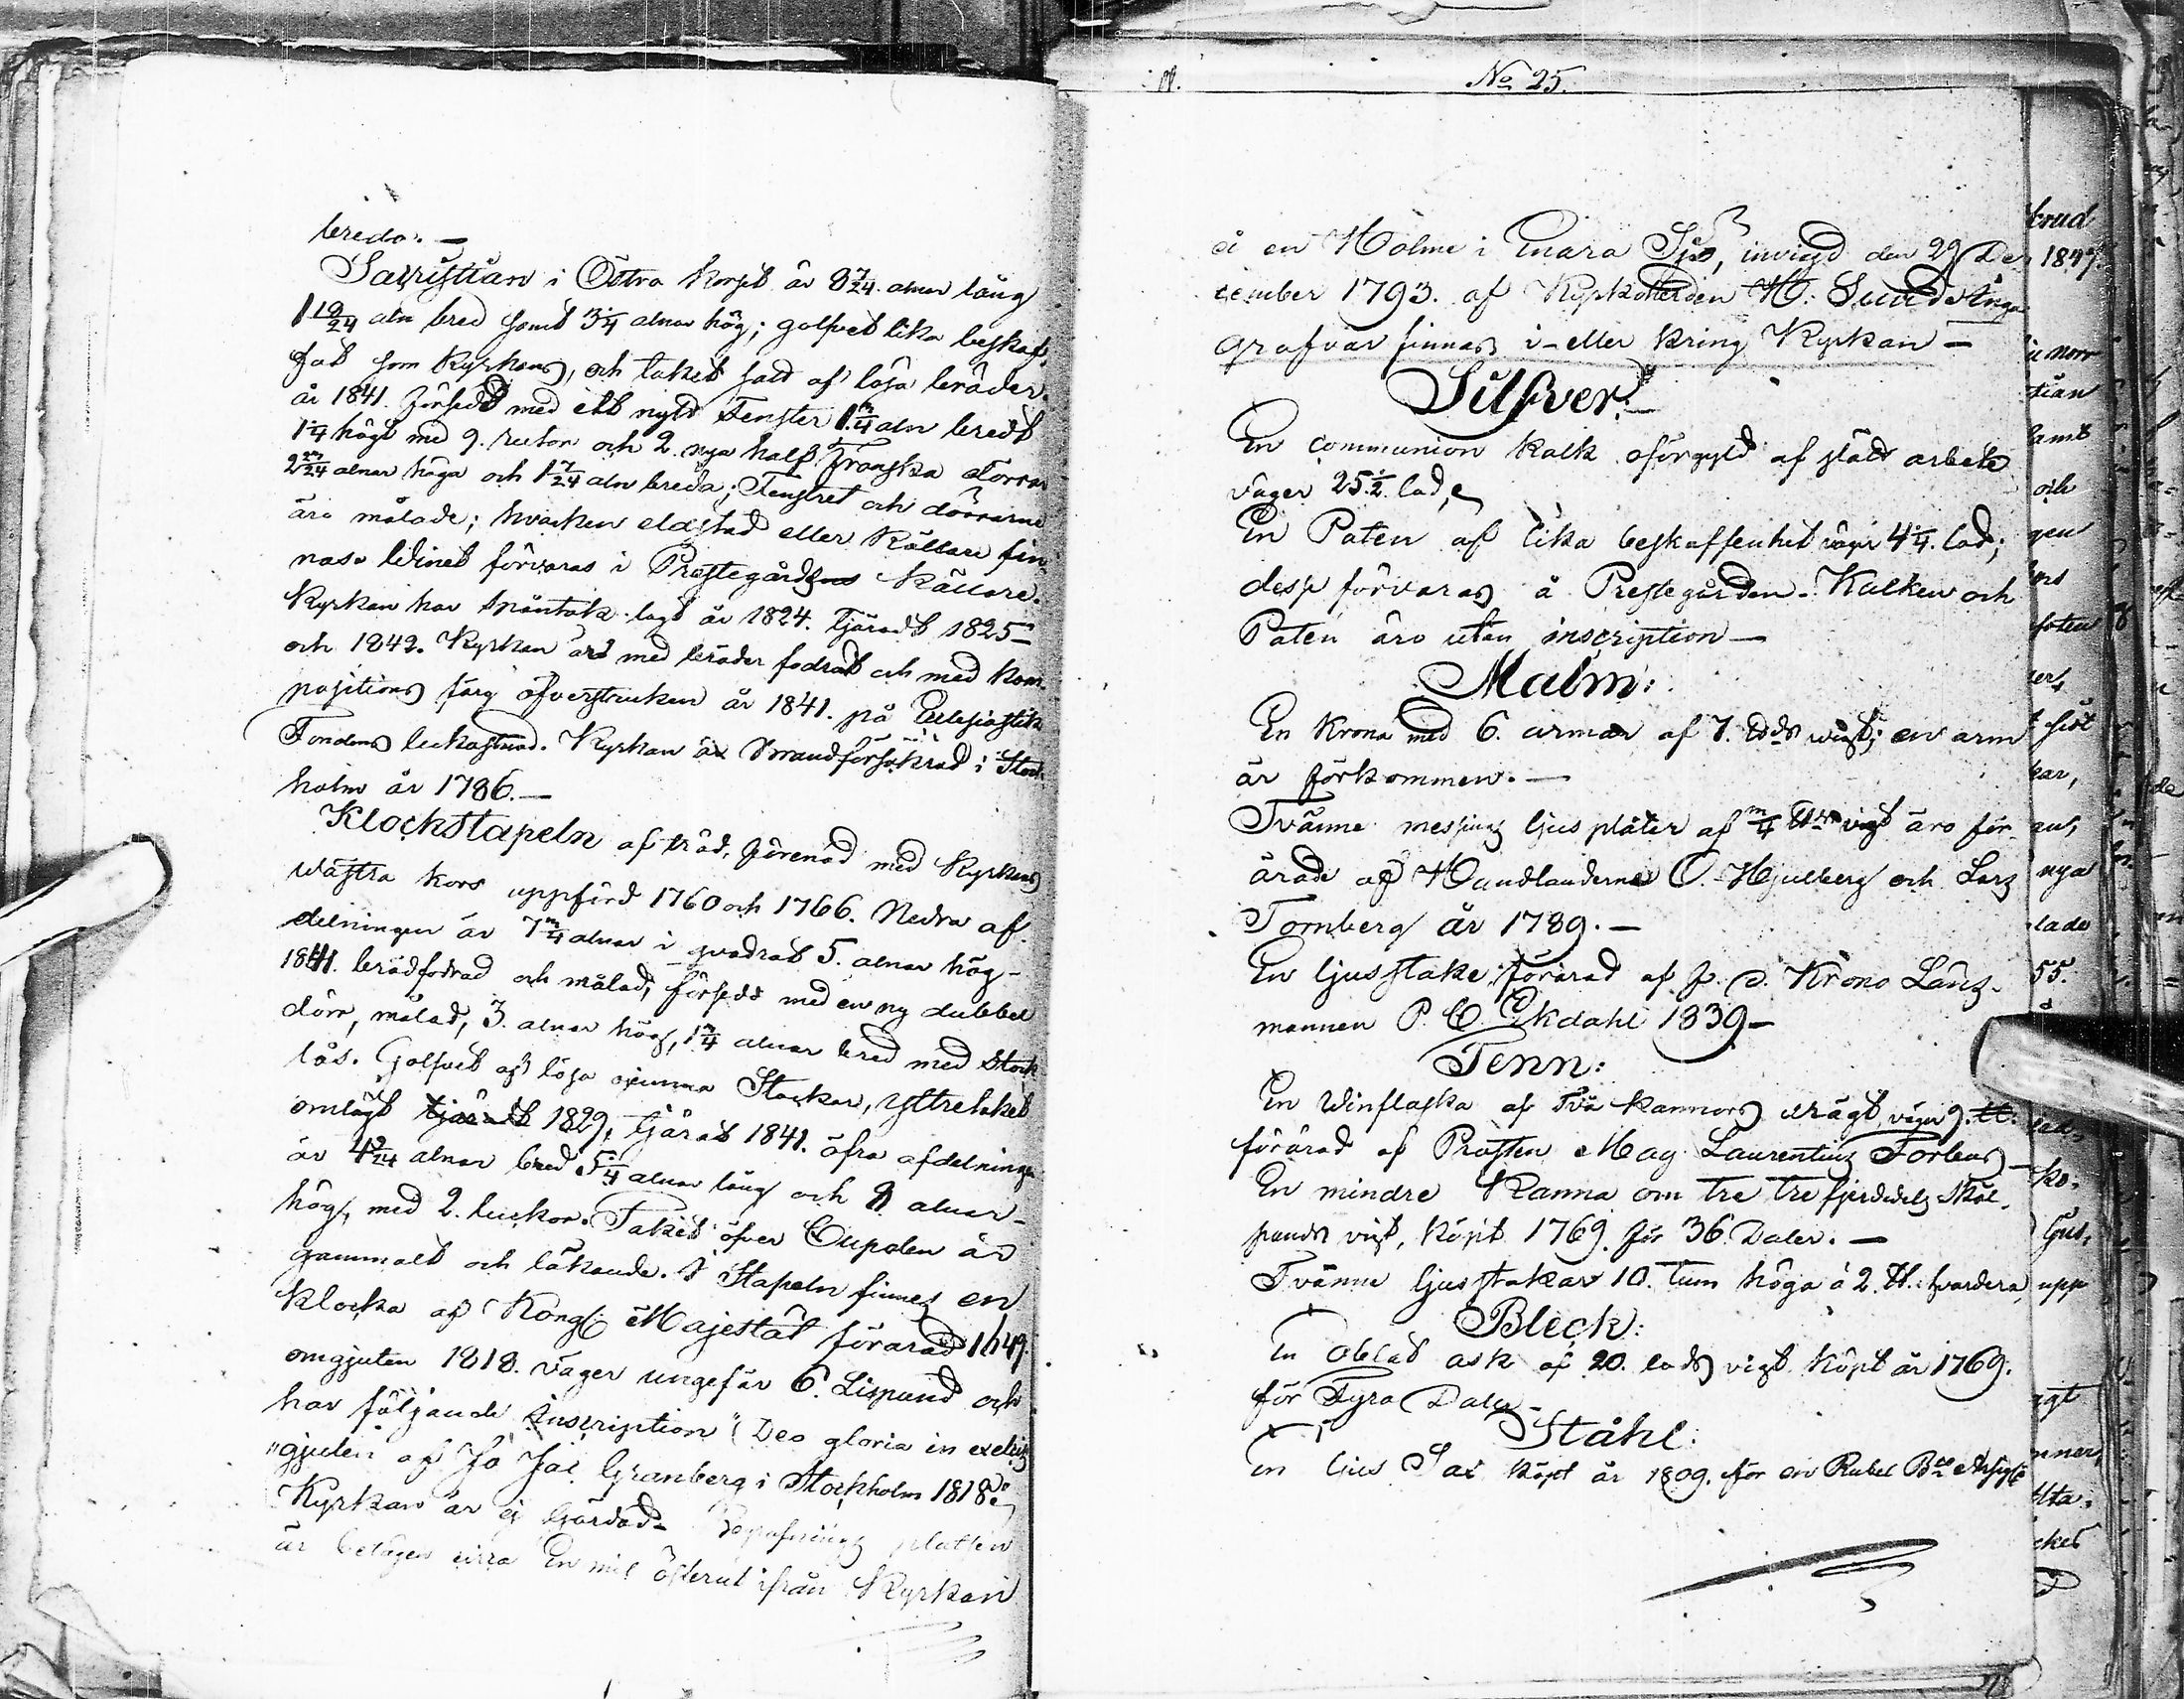 breda. —
Sacristian i Östra Korset är 8 7/24 alnar lång
1 19/24 aln bred samt 3 1/4 alnar hög; golfvet lika beskaf-
fat som Kyrkans, och taket satt af lösa bräder.
år 1841. försedd med ett nytt Fenster 1 3/4 aln bredt
1 1/4 högt med 9. rutor och 2. nya half Franska dörrar
alnar höga och 1 7/24 aln breda; Fenstret och dörrarne
äro målade; hvarken eldstad eller Källare fin-
nas. Winet förvaras i Prestegårdens Källare.
Kyrkan har spåntak lagt år 1824. tjäradt 1825
och 1842. Kyrkan är med bräder fodrad och med kom-
positions färg öfverstruken år 1841. på Ecclesiastik
Fondens bekostnad. Kyrkan är Brandförsäkrad i Stock-
holm år 1786. —
Klockstapeln af träd, förenad med Kyrkans
wästra kors uppförd 1760 och 1766. Nedra af-
delningen är 7 3/4 alnar i quadrat 5. alnar hög -
1841. brädfodrad och målad, försedd med en ny dubbel
dörr, målad, 3. alnar hög, 1 3/4 alnar bred med Stock
lås. Golfvet af lösa ojemna Stockar, yttretaket
omlagt 1829, tjärat 1841. öfra afdelningen
är alnar bred 5 1/4 alnar lång och alnar
hög, med 2. luckor. Taket öfver Cupolen är
gammalt och läkande. I Stapeln finnes en
klocka af Kongl: Majestät förärad 1649
omgjuten 1818. väger ungefär 6. Lispund och
har följande inscription "Deo gloria in exelsis
"gjuten af Jo Jac Granberg i Stockholm 1818"
Kyrkan är ej gärdad. Begrafnings platsen
är belägen cirra En mil österut ifrån Kyrkan
No 25.
å en Holme i Enara Sjö, invigd den 29 De-
cember 1793. af Kyrkoherden Inga
grafvar finnas i- eller kring Kyrkan —
Silfver: —
En communion Kalk oförgyld af slätt arbete
väger 25 1/2. lod,
En Paten af lika beskaffenhet väger 4 1/4. lod;
dess förvaras å Prestegården. Kalken och
Paten äro utan inscription —
Malm:
En Krona med 6. armar af 7. wigt; en arm
är förkommen. —
Tvänne messing ljus plåter af vigt äro för-
ärade af Handlanderne O. Hjulberg och Lars
Tornberg år 1789. —
En ljusstake förärad af f. d. Krono Läns-
mannen P. C. Ekdahl 1839 —
Tenn:
En Winflaska af Två Kannors drägt, väger 9. ℔:
förärad af Prosten Mag Laurentius Forbus —
En mindre Kanna om tre tre fjerdedels Skål-
punds vigt, köpt 1769. för 36 Daler. —
Tvänne ljusstakar 10. tum höga á 2. ℔. hvardera
Bleck:
En Oblat ask af 20. lods vigt köpt år 1769.
för Fyra Daler —
Ståhl:
En ljus Sax köpt år 1809. för en Rubel Bco Assign: